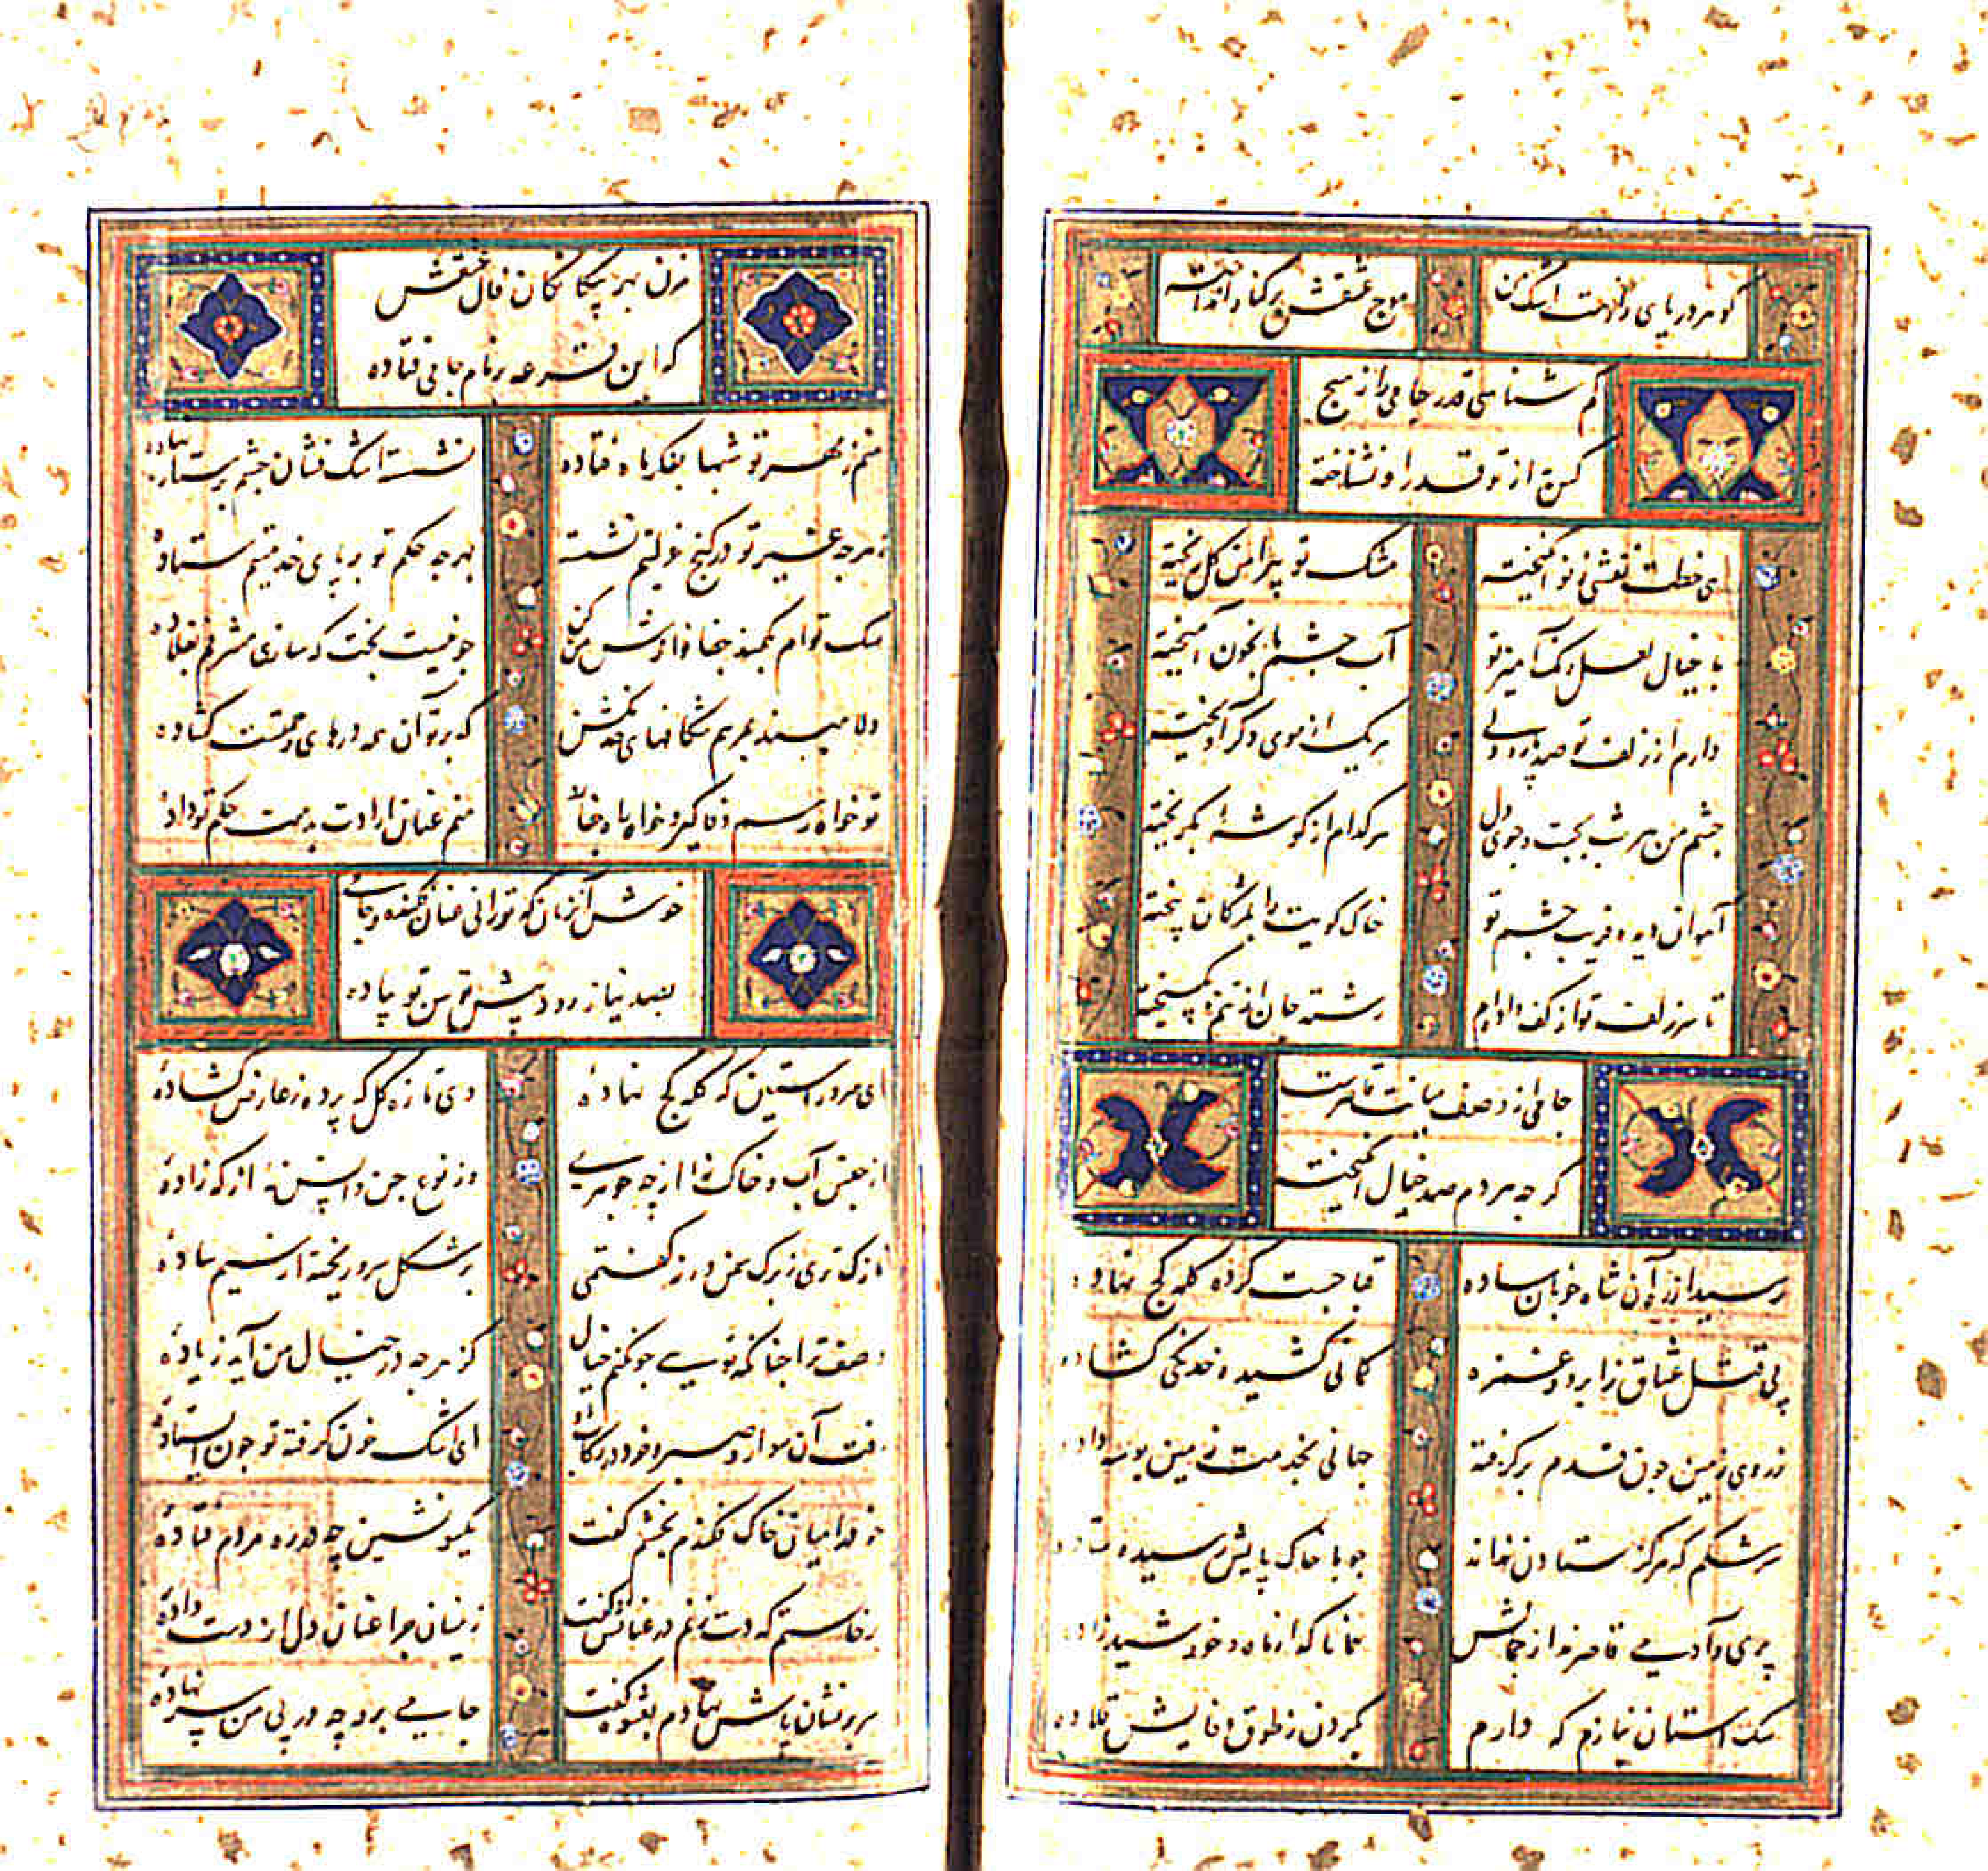 گوهر دریای رحمت اشک من
موج عشقش بر کنار انداخته
کم شناسی قدر جامی را ز هیچ
کس به از تو قدر او نشناخته
ای خطت نقشی ز نو انگیخته
مشک تر پیرامن گل ریخته
با خیال لعل رنگ آمیز تو
آب چشم ما بخون آمیخته
دارم از زلف تو صد پاره دلی
هر یک از موی دگر آویخته
چشم من هر شب بجست و جوی دل
هر کدام از گوشه بگریخته
آهوان دیده فریب چشم تو
خاک کویت را بمژگان بیخته
تا سر زلف تو از کف داده‌ام
رشته جان از تنم بگسیخته
جامی از وصف میانت قاصرست
گرچه هر دم صد خیال انگیخته
رسید از ره آن شاه خوبان ساده
قبا چست کرده کله کج نهاده
پی قتل عشاق ز ابرو و غمزه
کمانی کشیده خدنگی گشاده
ز روی زمین چون قدم برگرفته
جهانی بخدمت زمین بوسه داده
سرشکم که هرگز ستادن نداند
چو با خاک پایش رسیده فتاده
پری و آدمی قاصرند از جمالش
همانا که از ماه و خورشید زاده
سگ آستان نیازم که دارم
بگردن ز طوق وفایش قلاده
مزن بهر بیگانگان فال عشقش
که این قرعه بر نام جامی فتاده
منم ز مهر تو شبها بفکر ماه فتاده
نشسته اشک فشان چشم بر ستاره نهاده
بهرچه غیر تو در کنج عزلتم بنشسته
بهرچه حکم تو بر پای خدمتیم ستاده
سگ توام بکمند جفا نوازش من کن
چو نیست بخت که سازی مشرفم بقلاده
دلا مبند بمرهم شگافهای خدنگش
که بر تو آن همه درهای رحمتست گشاده
تو خواه رسم وفا گیر و خواه راه جفا
منم عنان ارادت بدست حکم تو داده
خوش آن زمان که تو رانی عنان فکنده و جامی
بصد نیاز رود پیش توسن تو پیاده
ای سرو راستین که کله کج نهاده
وی تازه گل که پرده ز عارض گشاده
از جنس آب و خاک نه از چه جوهری
وز نوع جن و انس نه از که زاده
نازکتری ز برگ سمن در ز گفتمی
بر شکل سرو ریخته از سیم ساده
وصف ترا چنانکه تویی چون کنم خیال
کز هرچه در خیال من آید زیاده
رفت آن سوار و صبر و خرد در رکاب او
ای اشک خون گرفته تو چون ایستاده
خود را میان خاک فکندم بخشم گفت
یکسو نشین چه در ره مردم فتاده
برخاستم که دست زنم در عنانش گفت
زینسان چرا عنان دل از دست داده
سر بر نشان پاش نهادم بعشوه گفت
جامی برو چه در پی من سر نهاده